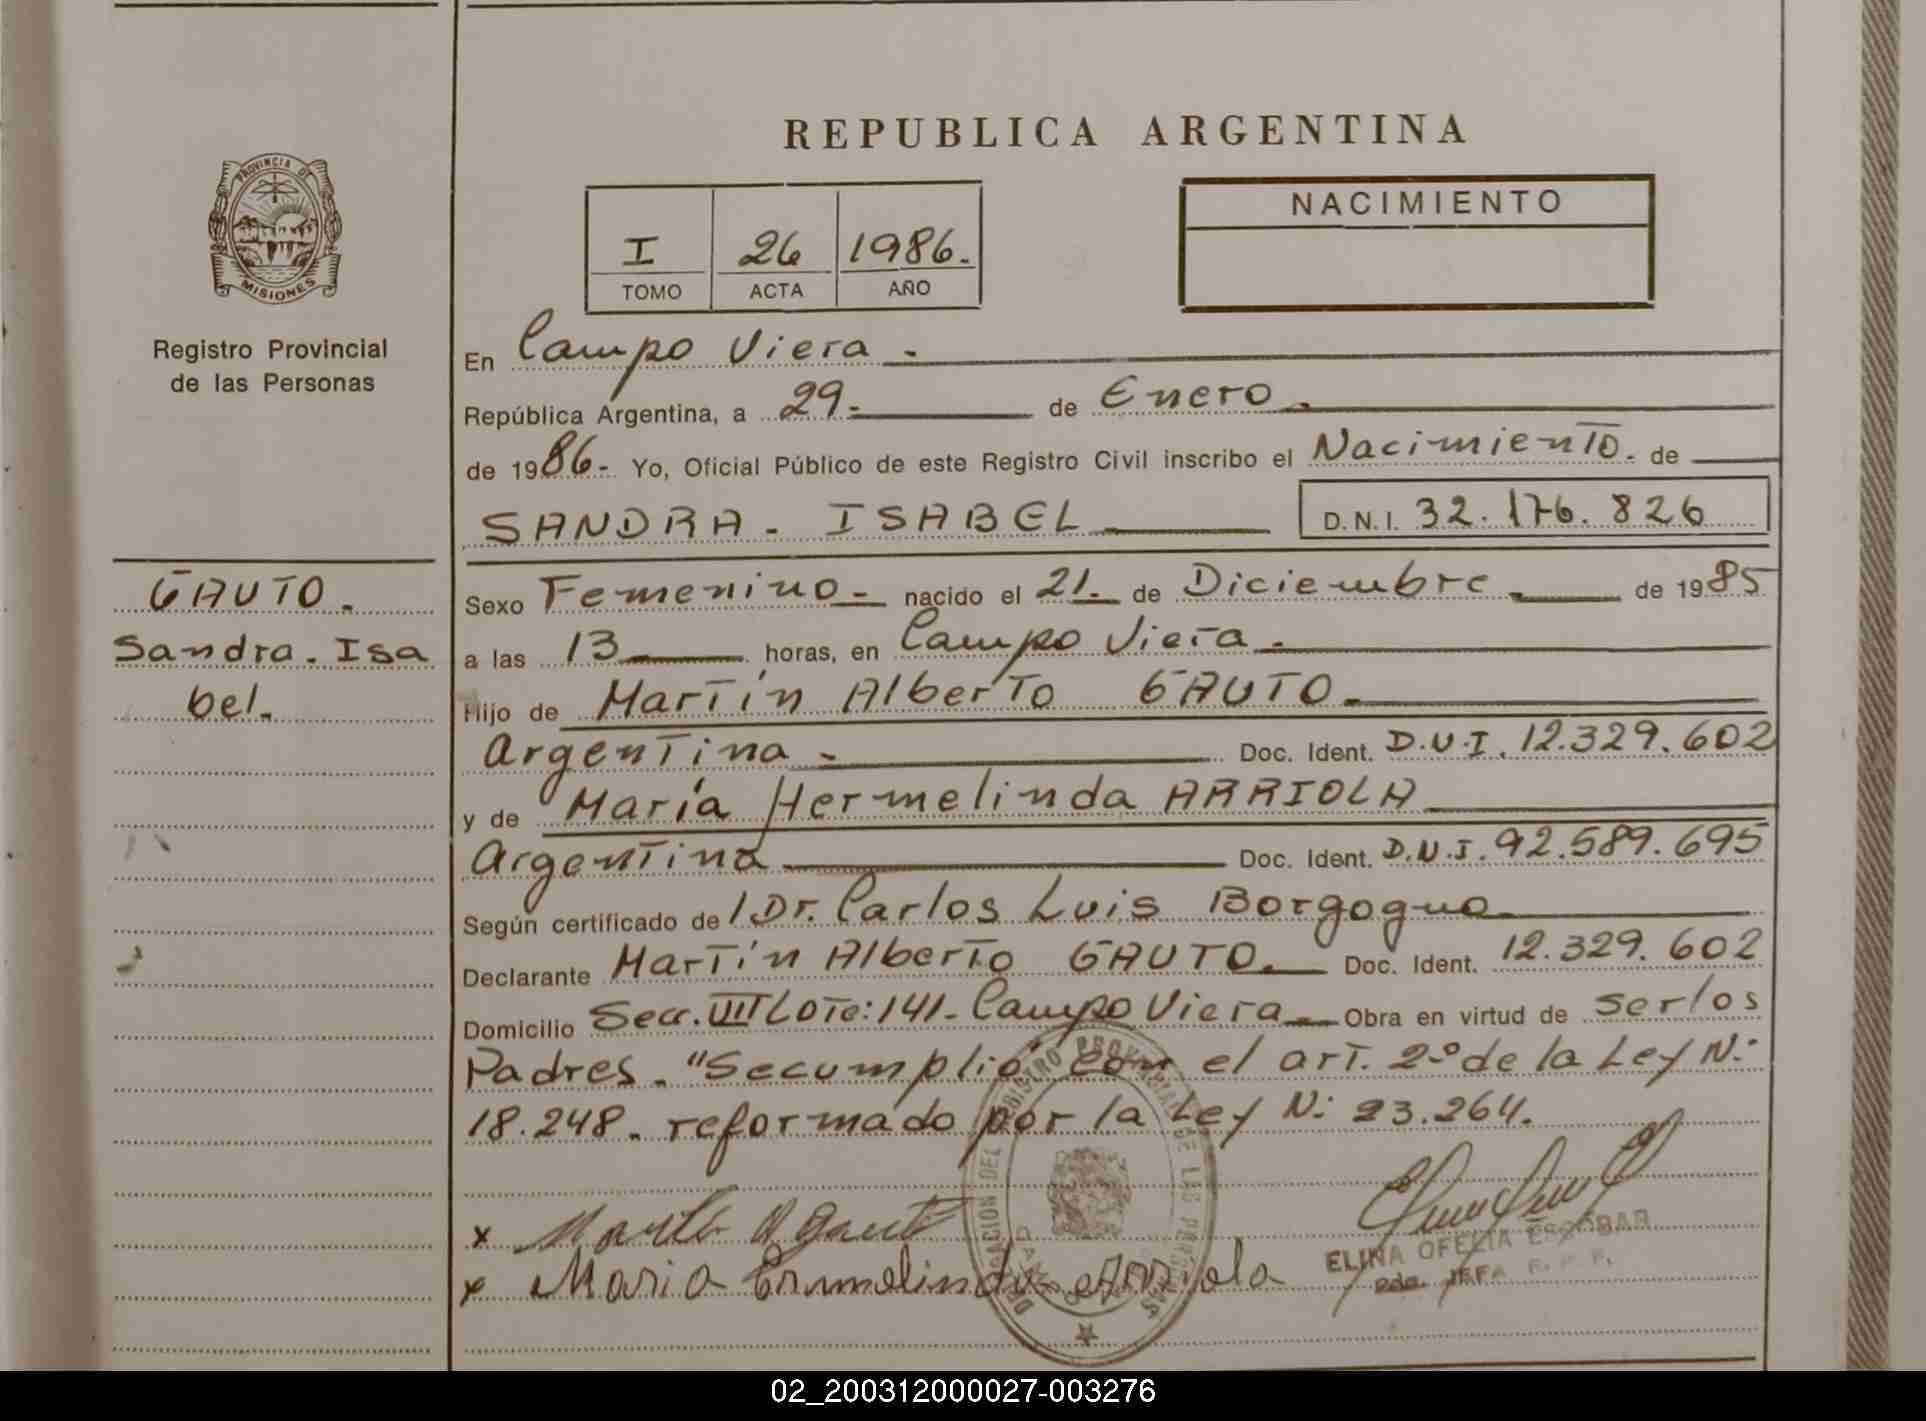 REPUBLICA ARGENTINA
PROVINCIA DE
MISIONES
Registro Provincial
de las Personas
I 26 1986.
TOMO ACTA AÑO
NACIMIENTO
En Campo Viera.
República Argentina, a 29. de Enero.
de 1986. Yo, Oficial Público de este Registro Civil inscribo el Nacimiento. de
SANDRA. ISABEL D.N.I. 32.176.826
GAUTO.
Sandra. Isa
bel.
Sexo Femenino. nacido el 21. de Diciembre. de 1985
a las 13 horas, en Campo Viera.
Hijo de Martín Alberto GAUTO.
Argentina. Doc. Ident. D.N.I. 12.329.602
y de María Hermelinda ARRIOLA
Argentina Doc. Ident. D.N.I. 92.589.695
Según certificado de Dr. Carlos Luis Borgogno
Declarante Martín Alberto GAUTO. Doc. Ident. 12.329.602
Domicilio Secc. VIII Lote: 141. Campo Viera Obra en virtud de ser los
Padres. "Se cumplió con el art. 2º de la Ley N:
18.248. reformado por la Ley N: 23.264.
x Martin A Gauto
x Maria Ermelinda Arriola
ELINA OFELIA ESCOBAR
JEFA R. P. P.
02_200312000027-003276